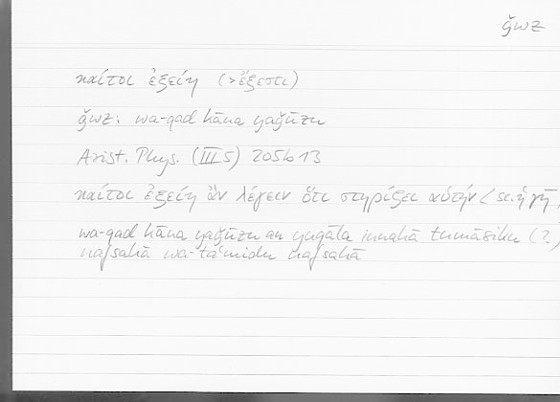 ǧwz
καίτοι ἐξείη (>ἔξεστι)
ǧwz: wa-qad kāna yaǧūzu
Arist. Phys. (III 5) 205b13
καίτοι ἐξείη ἂν λέγειν ὅτι στηρίζει αὑτήν (sc. ἡ γῆ,
wa-qad kāna yaǧūzu an yuqāla innahā tumāsiku (?)
nafsahā wa-taʿmidu nafsahā